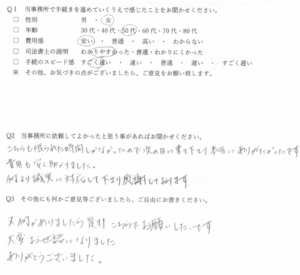 Q1 当事務所で手続きを進めていくうえで感じたことをお聞かせください。
□ 性別 男 ・ 女
□ 年齢 30代・40代・50代・60代・70代・80代
□ 費用感 安い ・ 普通 ・ 高い ・ わからない
□ 司法書士の説明 わかりやすかった・普通・わかりにくかった
□ 手続のスピード感 すごく速い ・ 速い ・ 普通 ・ 遅い ・ すごく遅い
※ その他、お気づきの点がございましたら、ご意見をお願い致します。
Q2 当事務所に依頼してよかったと思う事があればお聞かせください。
こちらも限られた時間しかなかったので次の日に来て下さり本当にありがたかったです
費用も安く助かりました。
何より誠実に対応して下さり感謝しております
Q3 その他にも何かご意見等ございましたら、ご自由にお書きください。
又何かありましたら是非こちらでお願いしたいです
大変お世話になりました
ありがとうございました。